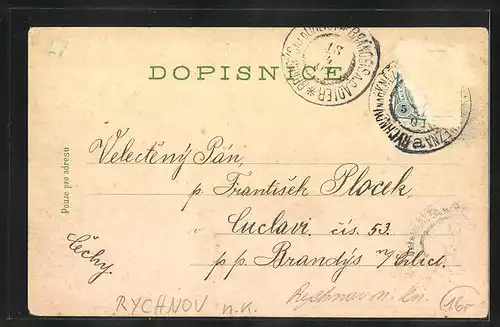 27
DOPISNICE
BRANDEIS A.D. ADLER
5
Pouze pro adresu
Velectěný Pán,
p. František Plocek,
v Cuclavi čís. 53.
p. p. Brandýs n/Orlicí.
Čechy.
RYCHNOV n. K.
Rychnov n. Kn.
16,-